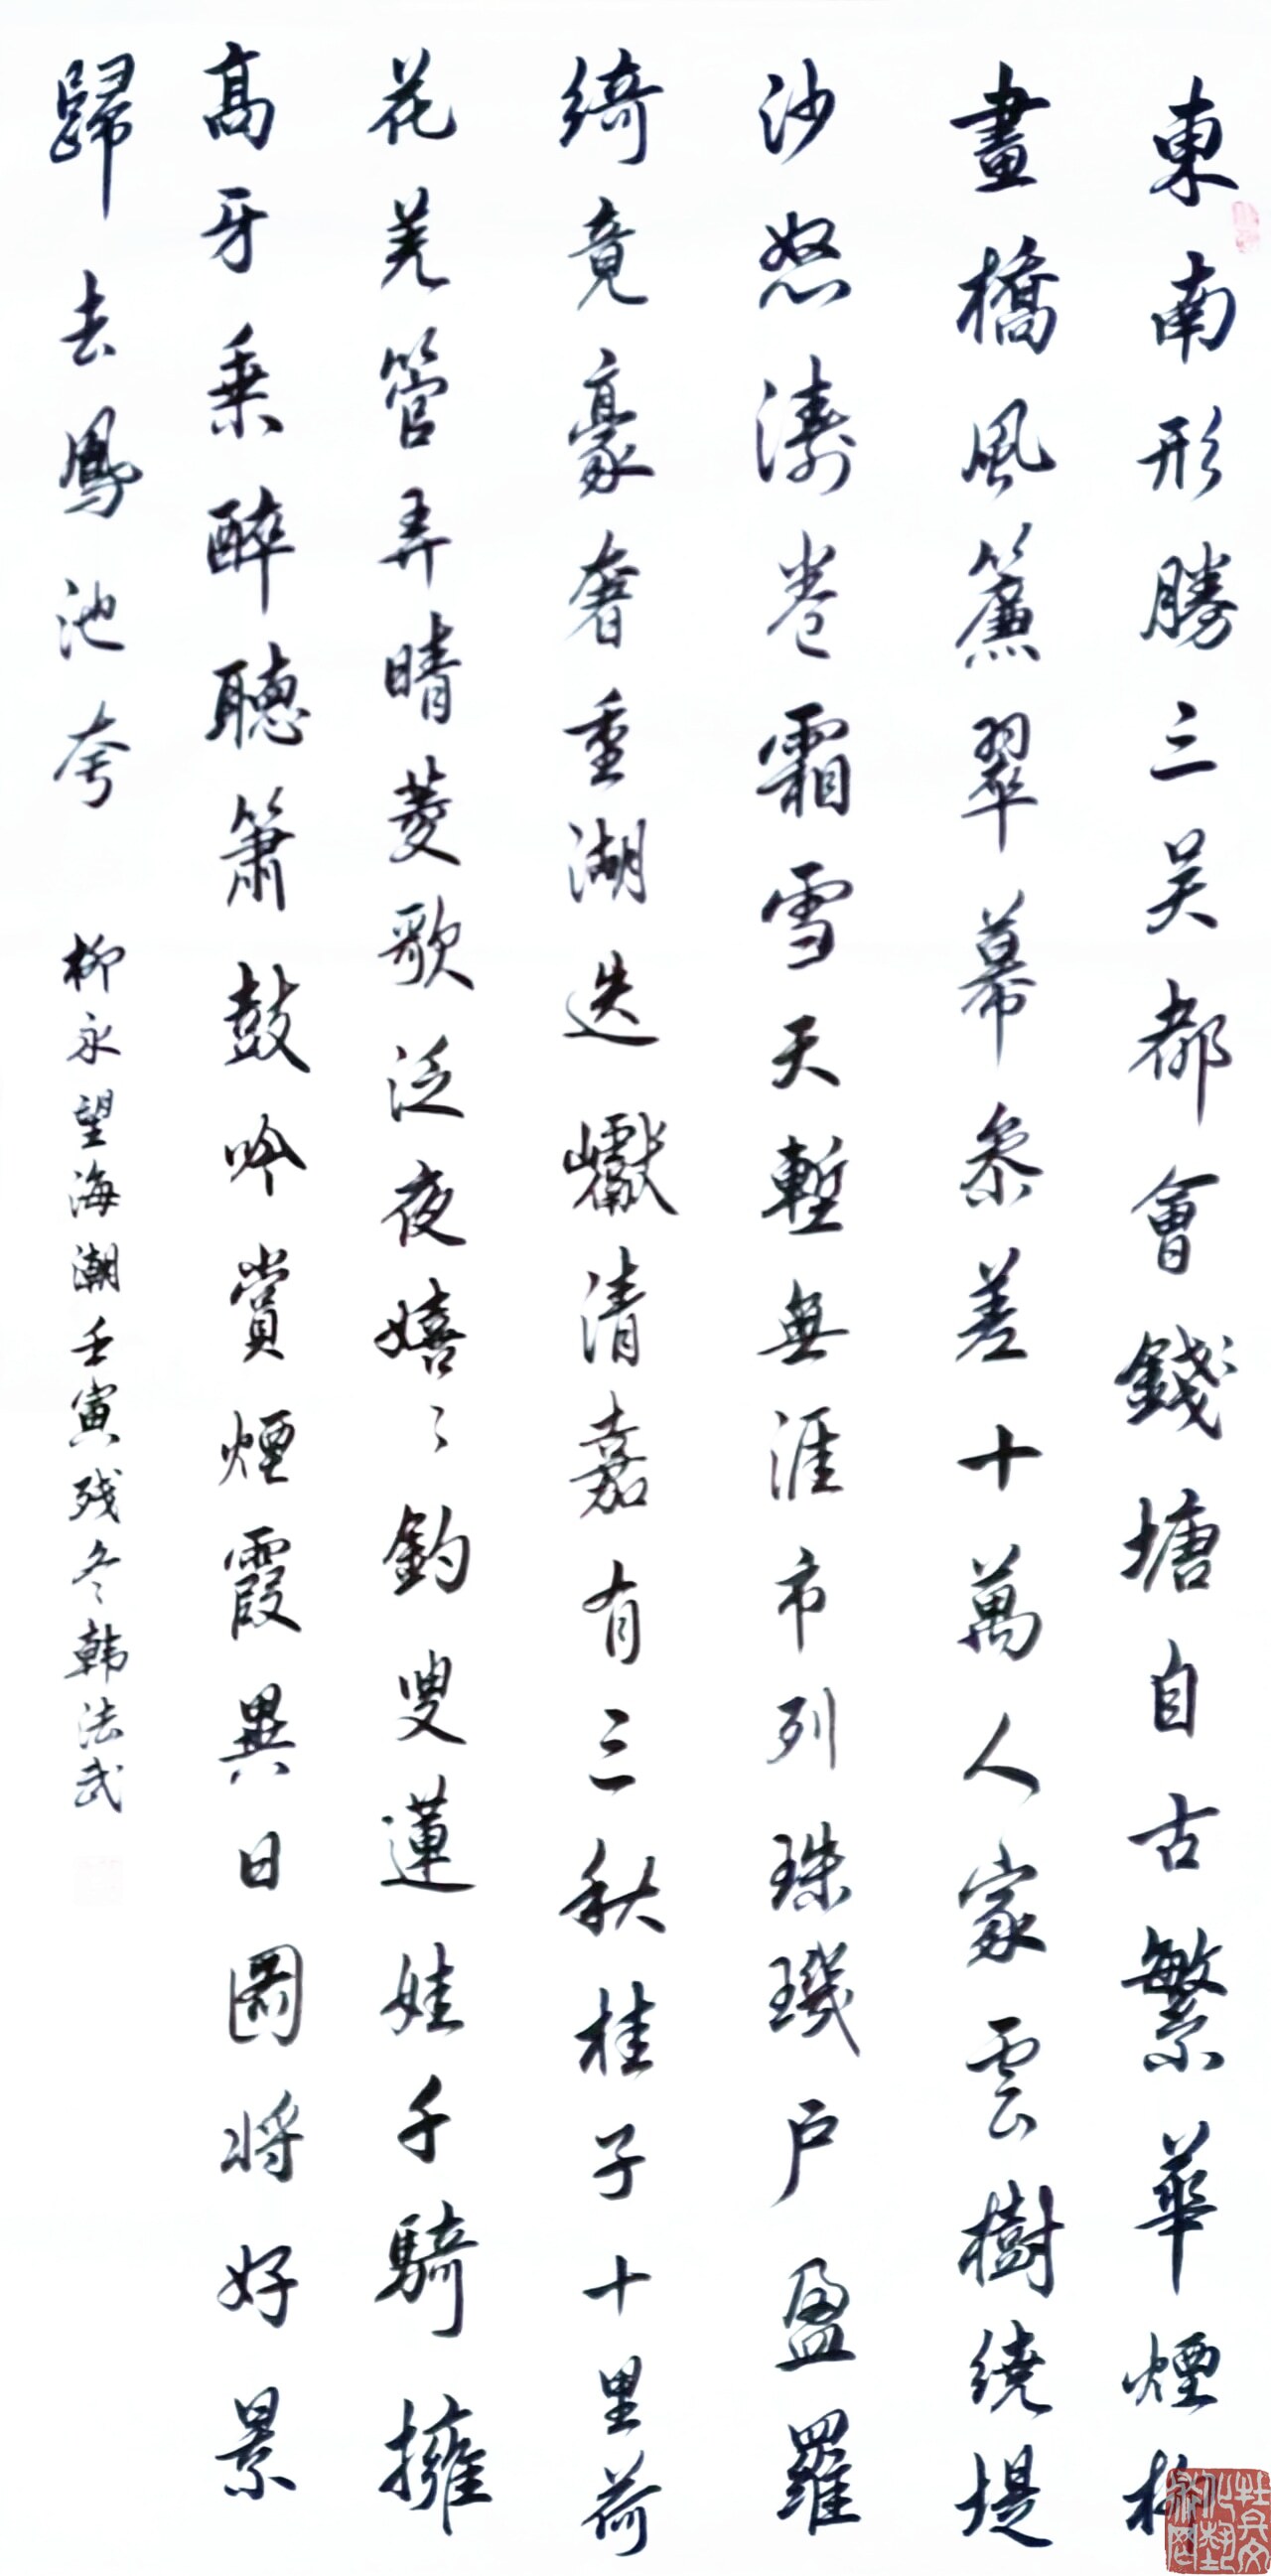 東南形勝三吴都會錢塘自古繁華煙柳
畫橋風簾翠幕参差十萬人家雲樹繞堤
沙怒濤卷霜雪天塹無涯市列珠璣户盈羅
綺竟豪奢重湖迭巘清嘉有三秋桂子十里荷
花羌管弄晴菱歌泛夜嬉々釣叟蓮娃千騎擁
高牙乘醉聽箫鼓吟賞煙霞異日圖将好景
歸去鳳池夸
柳永望海潮壬寅残冬韩法武